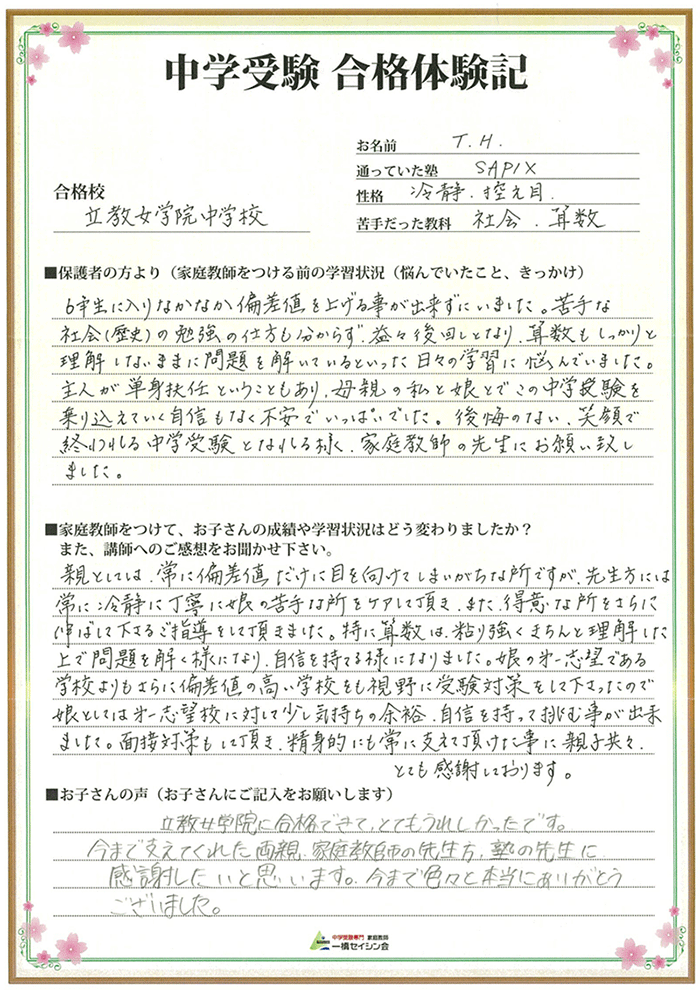 中学受験 合格体験記
お名前 T.H.
通っていた塾 SAPIX
合格校 立教女学院中学校
性格 冷静.控え目.
苦手だった教科 社会.算数
■保護者の方より（家庭教師をつける前の学習状況（悩んでいたこと、きっかけ）
6年生に入りなかなか偏差値を上げる事が出来ずにいました。苦手な
社会(歴史)の勉強の仕方も分からず.益々後回しとなり.算数もしっかりと
理解しないままに問題を解いているといった日々の学習に悩んでいました。
主人が単身扶任ということもあり.母親の私と娘とでこの中学受験を
乗り込えていく自信もなく不安でいっぱいでした。後悔のない.笑顔で
終われる中学受験となれる様.家庭教師の先生にお願い致し
ました。
■家庭教師をつけて、お子さんの成績や学習状況はどう変わりましたか？
また、講師へのご感想をお聞かせ下さい。
親としては.常に偏差値だけに目を向けてしまいがちな所ですが.先生方には
常に冷静に丁寧に娘の苦手な所をケアして頂き.また.得意な所をさらに
伸ばして下さるご指導をして頂きました。特に算数は.粘り強くきちんと理解した
上で問題を解く様になり.自信を持てる様になりました。娘の第一志望である
学校よりもさらに偏差値の高い学校をも視野に受験対策をして下さったので
娘としては第一志望校に対して少し気持ちの余裕.自信を持って挑む事が出来
ました。面接対策もして頂き.精身的にも常に支えて頂けた事に親子共々.
とても感謝しております。
■お子さんの声（お子さんにご記入をお願いします）
立教女学院に合格できて、とてもうれしかったです。
今まで支えてくれた両親.家庭教師の先生方.塾の先生に
感謝したいと思います。今まで色々と本当にありがとう
ございました。
中学受験専門 家庭教師
一橋セイシン会